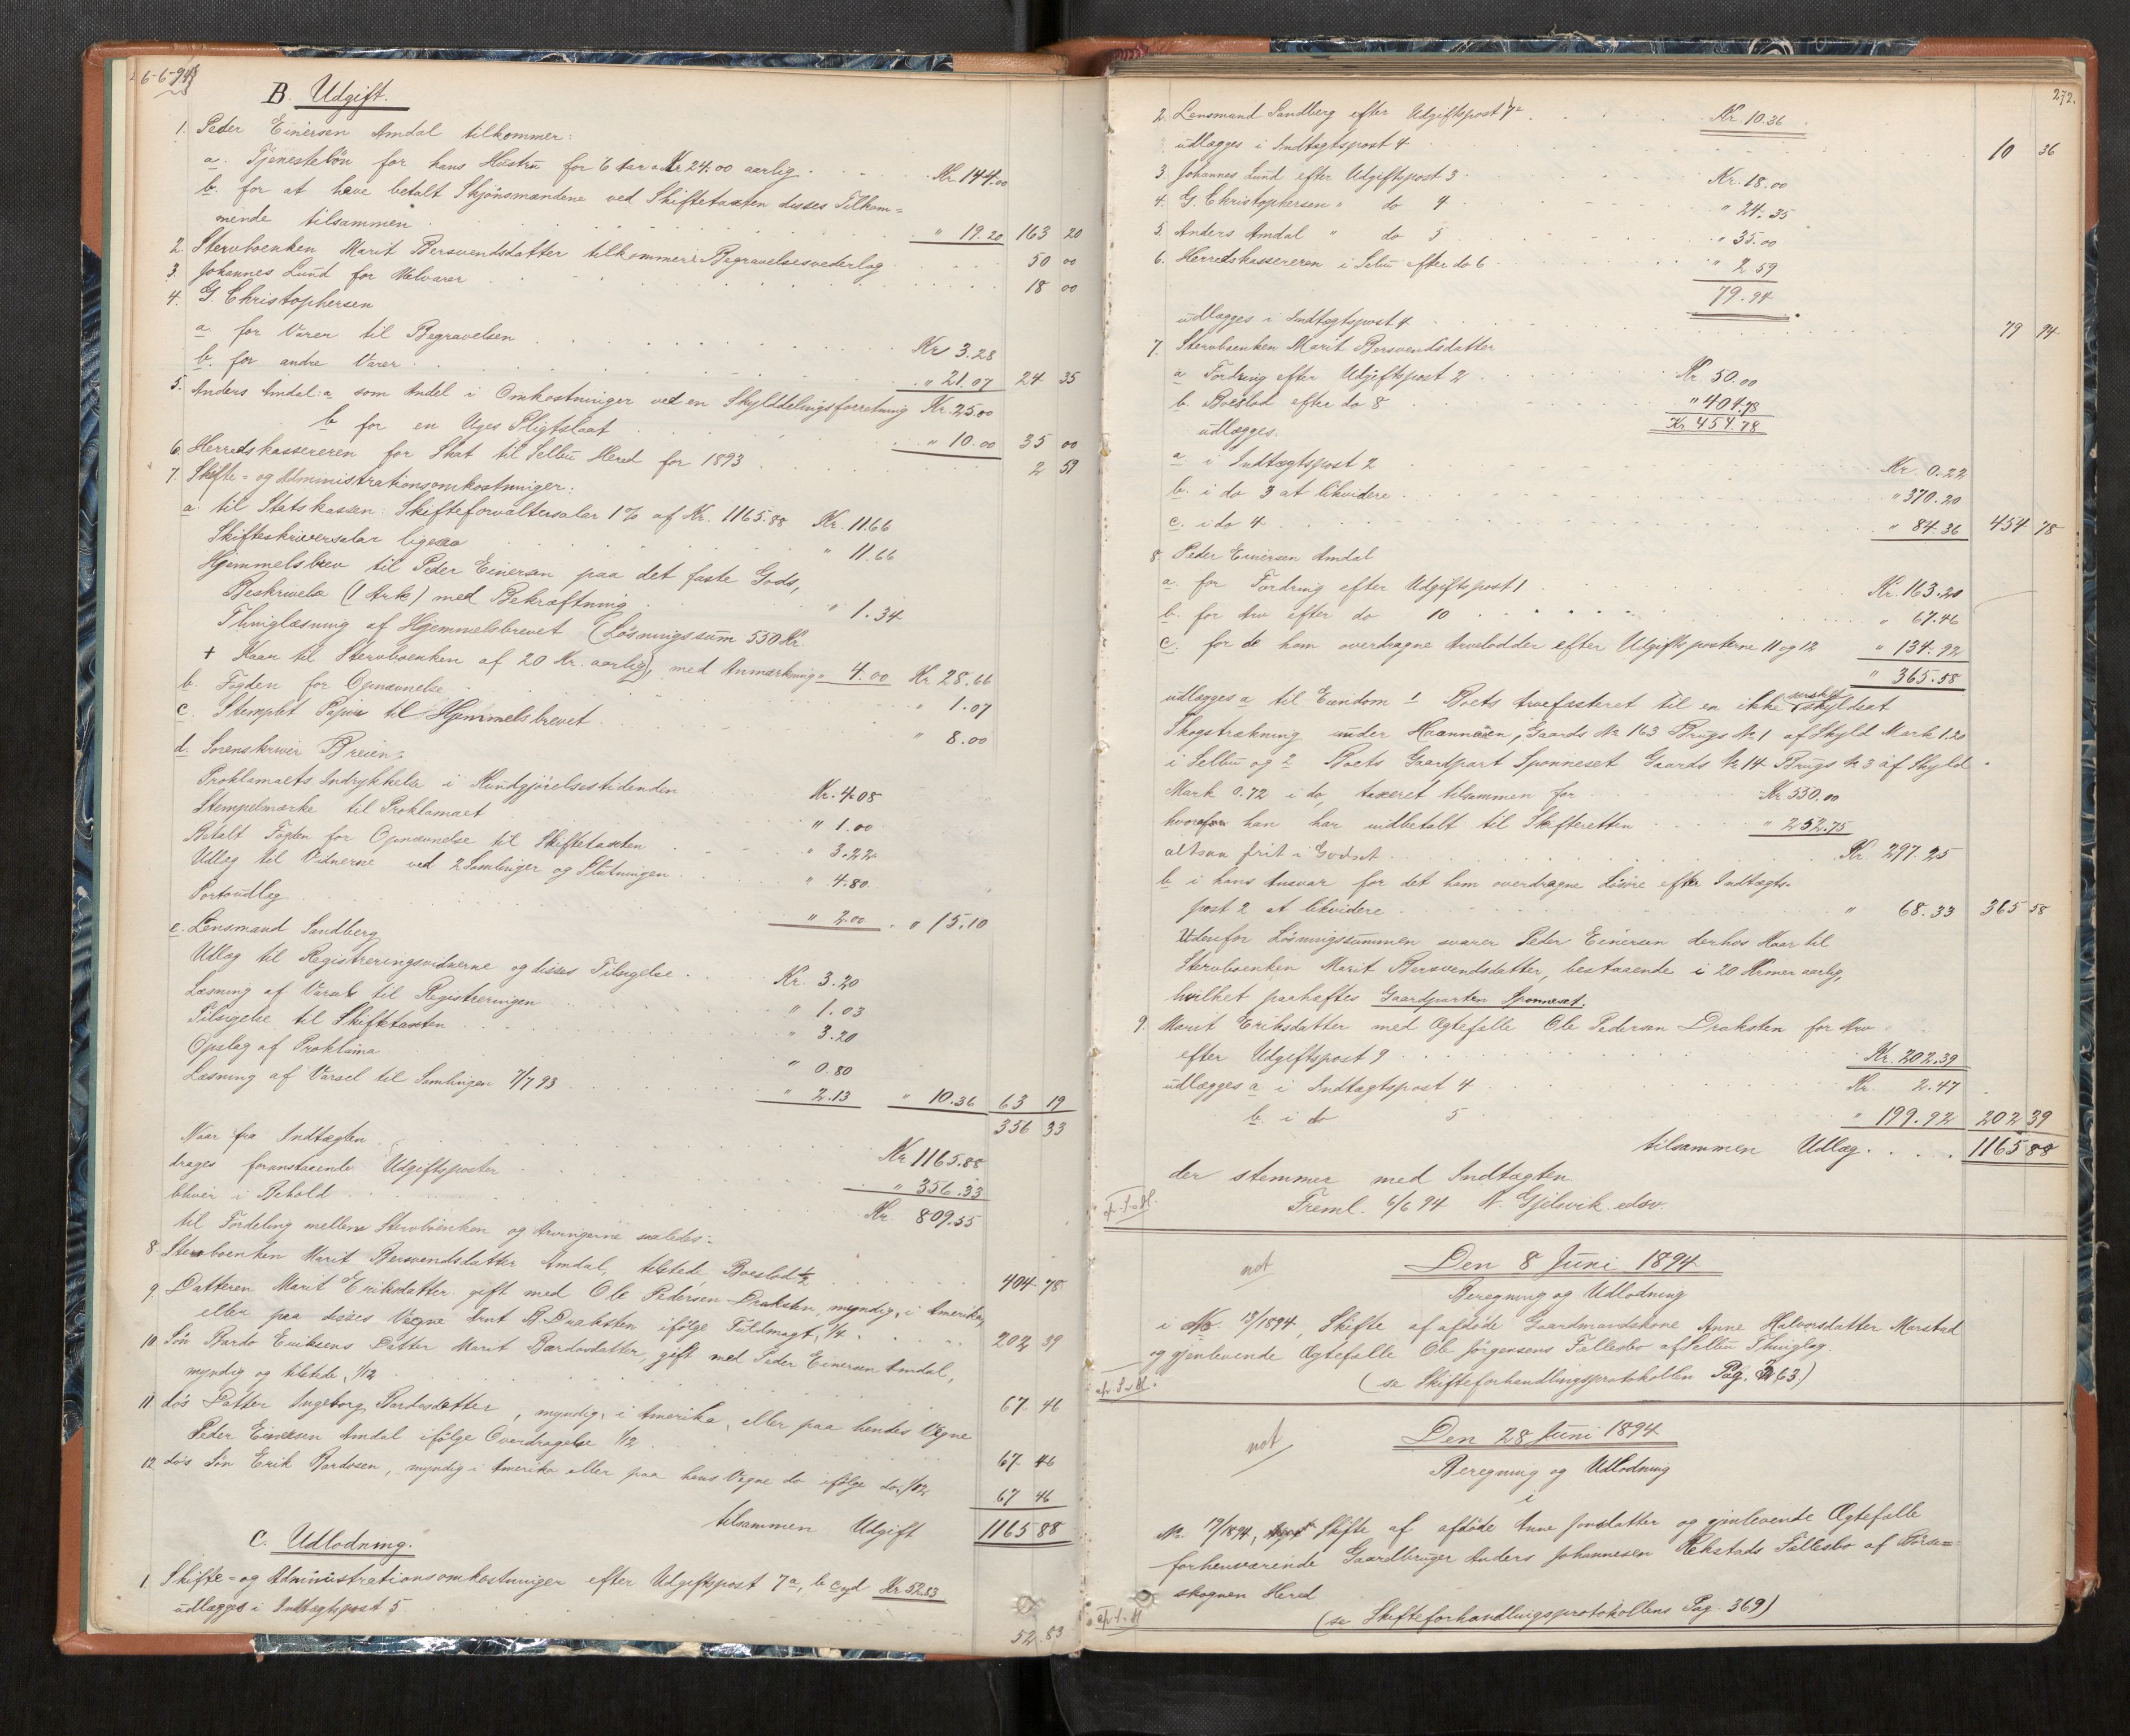 6-6-94
B. Udgift.
1. Peder Einersen Amdal tilkommer:
a. Tjenesteløn for hans Hustru for 6 Aar a Kr 24.00 aarlig . . . Kr. 144.00
b. for at have betalt Skjønsmændene ved Skiftetaxten disses Tilkom=
mende tilsammen . . . " 19.20 163 20
2. Stervboenken Marit Bersvendsdatter tilkommer i Begravelsesvederlag . . . 50 00
3. Johannes Lund for Uldvarer . . . 18 00
4. G. Christophersen
a for Varer til Begravelsen . . . Kr 3.28
b. for andre Varer . . . " 21.07 24 35
5. Anders Amdal: a som Andel i Omkostninger ved en Skylddelingsforretning Kr. 25.00
b for en Uges Pligtslaat . . . " 10.00 35 00
6. Herredskassereren for Skat til Selbu Hered for 1893 . . . 2 59
7. Skifte- og Administrationsomkostninger:
a. til Statskassen: Skifteforvaltersalar 1% af Kr. 1165.88 Kr. 11.66
Skifteskriversalar ligesaa . . . " 11.66
Hjemmelsbrev til Peder Einersen paa det faste Gods,
Beskrivelse (1 Ark) med Bekræftning . . . " 1.34
Thinglæsning af Hjemmelsbrevet (Løsningssum 550 Kr.
+ Kaar til Stervboenken af 20 Kr. aarlig), med Anmærkning " 4.00 Kr 28.66
b. Fogden for Opnævnelse . . . " 1.07
c. Stemplet Papir til Hjemmelsbrevet . . . " 8.00
d. Sorenskriver Breien:
Proklamaets Indrykkelse i Kundgjørelsestidenden Kr. 4.08
Stempelmærke til Proklamaet " 1.00
Betalt Fogden for Opnævnelse til Skiftetaxten " 3.22
Udlæg til Vidnerne ved 2 Samlinger og Slutningen " 4.80
Portoudlæg . . . " 2.00 . " 15.10
e. Lensmand Sandberg
Udlæg til Registreringsvidnerne og disses Tilsigelse . . . Kr. 3.20
Læsning af Varsel til Registreringen " 1.03
Tilsigelse til Skiftetaxten " 3.20
Opslag af Proklama " 0.80
Læsning af Varsel til Samlingen 7/7 93 . . . " 2.13 " 10.36 63 19
356 33
Naar fra Indtægten . . . Kr 1165.88
drages foranstaaende Udgiftsposter . . . " 356.33
bliver i Behold . . . Kr. 809.55
til Fordeling mellem Stervboenken og Arvingerne saaledes:
8. Stervboenken Marit Bersvendsdatter Amdal, tilstede, Boeslod 1/2 . . . 404 78
9. Datteren Marit Eriksdatter gift med Ole Pedersen Draksten, myndig, i Amerika,
eller paa disses Vegne Arnt B. Draksten ifølge Fuldmagt, 1/4 . . . 202 39
10 Søn Bardo Eriksens Datter Marit Bardosdatter, gift med Peder Einersen Amdal,
myndig og tilstede, 1/12 . . . 67 46
11 dos Datter Ingeborg Bardosdatter, myndig, i Amerika, eller paa hendes Vegne
Peder Einersen Amdal ifølge Overdragelse 1/12 . . . 67 46
12 dos Søn Erik Bardosen, myndig i Amerika eller paa hans Vegne do ifølge do, 1/12 67 46
tilsammen Udgift 1165 88
C. Udlodning.
1. Skifte- og Administrationsomkostninger efter Udgiftspost 7a, b c og d Kr 52.83
udlægges i Indtægtspost 5 . . . 52.83
272.
2. Lensmand Sandberg efter Udgiftspost 7e . . . Kr. 10.36
udlægges i Indtægtspost 4 . . . 10 36
3. Johannes Lund efter Udgiftspost 3 . . . Kr. 18.00
4. G. Christophersen " do 4 . . . " 24.35
5. Anders Amdal " do 5 . . . " 35.00
6. Herredskassereren i Selbu efter do 6 . . . " 2 59
79.94
udlægges i Indtægtspost 4 . . . 79 94
7. Stervboenken Marit Bersvendsdatter
a Fordring efter Udgiftspost 2 . . . Kr 50.00
b. Boeslod efter do 8 . . . " 404.78
udlægges. Kr 454.78
a i Indtægtspost 2 . . . Kr. 0.22
b. i do 3 at likvidere . . . " 370.20
c. i do 4 . . . " 84.36 454 78
8. Peder Einersen Amdal
a. for Fordring efter Udgiftspost 1 . . . Kr. 163.20
b. for Arv efter do 10 . . . " 67.46
c. for de ham overdragne Arvelodder efter Udgiftsposterne 11 og 12 " 134.92
" 365.58
udlægges a til Eiendom 1 Boets Arvefæsteret til en ikke særskilt skyldsat
Skogstrækning under Haannaaen, Gaards No 163 Brugs No 1 af Skyld Mark 1.20
i Selbu og 2 Boets Gaardpart Sponneset Gaards No 14 Brugs No 3 af Skyld
Mark 0.72 i do, taxeret tilsammen for . . . Kr 550.00
hvorfor han har indbetalt til Skifteretten . . . " 252.75
altsaa frit i Godset . . . Kr. 297.25
b i hans Ansvar for det ham overdragne Løsøre efter Indtægts-
post 2 at likvidere . . . " 68.33 365 58
Udenfor Løsningssummen svarer Peder Einersen derhos Kaar til
Stervboenken Marit Bersvendsdatter, bestaaende i 20 Kroner aarlig,
hvilket paahæftes Gaardparten Sponneset.
9. Marit Eriksdatter med Ægtefælle Ole Pedersen Draksten for Arv
efter Udgiftspost 9 . . . Kr. 202.39
udlægges a i Indtægtspost 4 . . . Kr. 2.47
b. i do 5 . . . " 199.92 202 39
tilsammen Udlæg . . . . 1165 88
der stemmer med Indtægten.
Freml. 6/6 94 N. Gjelsvik. edsv.
Den 8 Juni 1894
not
Beregning og Udlodning
i No. 13/1894, Skifte af afdøde Gaardmandskone Anne Halvorsdatter Marstad
og gjenlevende Ægtefælle Ole Jørgensens Fællesbo af Selbu Thinglag.
(se Skifteforhandlingsprotokollen Pag. 263)
Den 28 Juni 1894
not
Beregning og Udlodning
i
No. 19/1894, Skifte af afdøde Anne Jonsdatter og gjenlevende Ægtefælle
forhenværende Gaardbruger Anders Johannesen Rekstads Fællesbo af Børse=
skognen Hered
(se Skifteforhandlingsprotokollens Pag. 369)